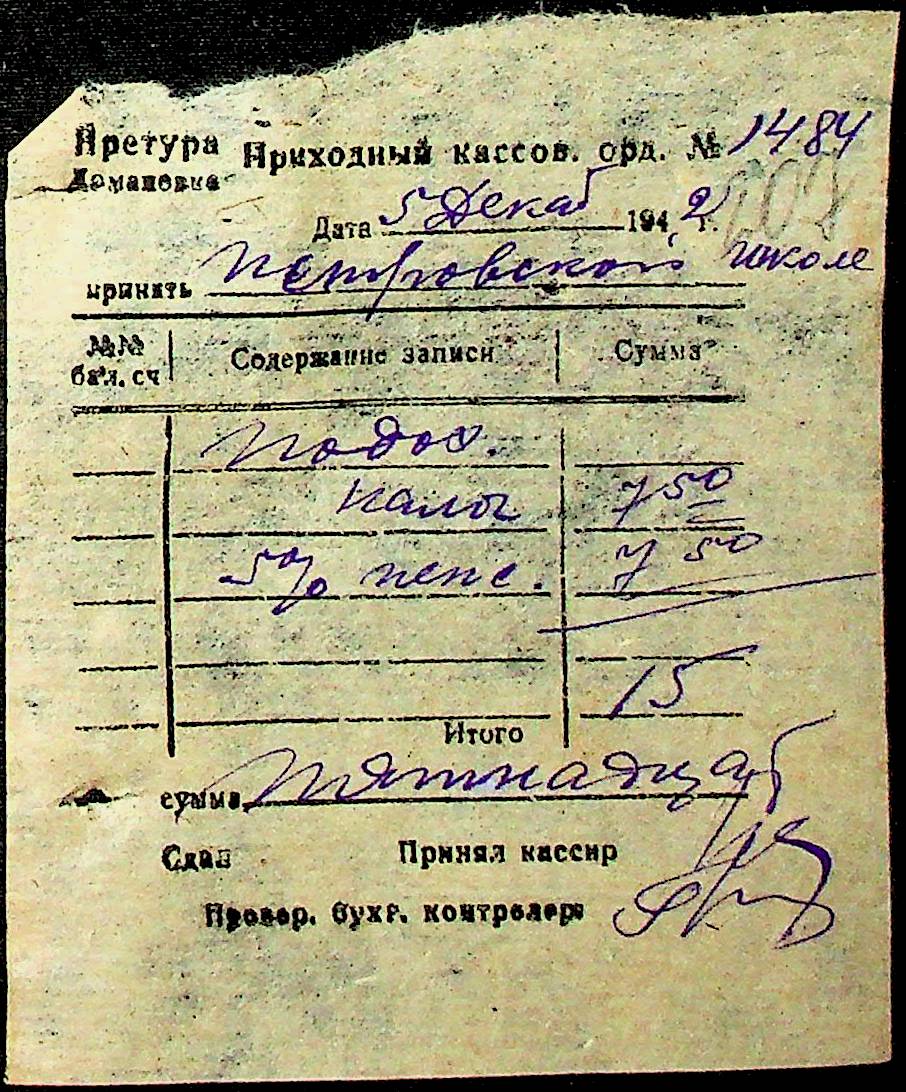 Претура Приходный кассов. орд. № 1484
Домановка
Дата 5 Декаб 1942 г.
принять Петровской школе
№№ бал. сч Содержание записи Сумма
Подох.
налог 7 50
5% пенс. 7 50
15
Итого
сумма Пятнадцать
Сдал Принял кассир
Провер. бухг. контролер